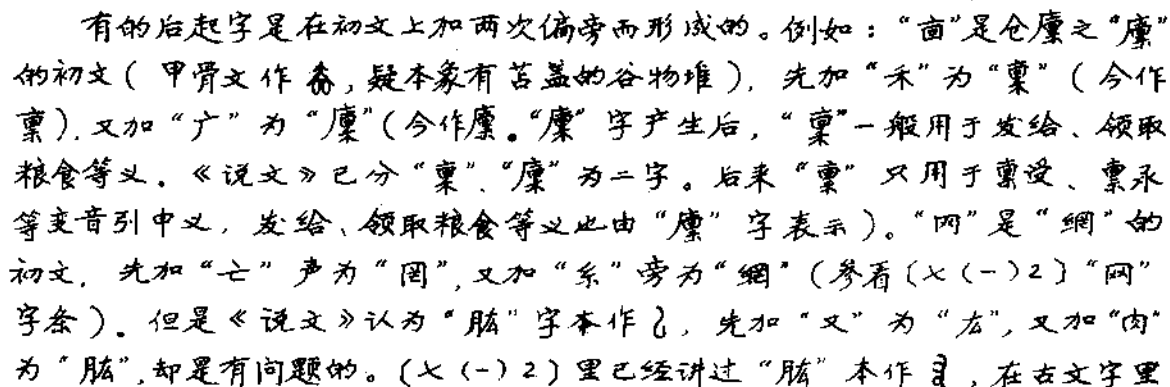 有的后起字是在初文上加两次偏旁而形成的。例如：“㐭”是仓廩之“廩”
的初文（甲骨文作，疑本象有苫盖的谷物堆），先加“禾”为“稟”（今作
禀），又加“广”为“廩”（今作廪。“廩”字产生后，“稟”一般用于发给、领取
粮食等义。《说文》已分“稟”、“廩”为二字。后来“稟”只用于禀受、禀承
等变音引申义，发给、领取粮食等义也由“廩”字表示）。“网”是“網”的
初文，先加“亡”声为“罔”，又加“糸”旁为“網”（参看〔七（一）2〕“网”
字条）。但是《说文》认为“肱”字本作𠃋，先加“又”为“厷”，又加“肉”
为“肱”，却是有问题的。〔七（一）2〕里已经讲过“肱”本作，在古文字里